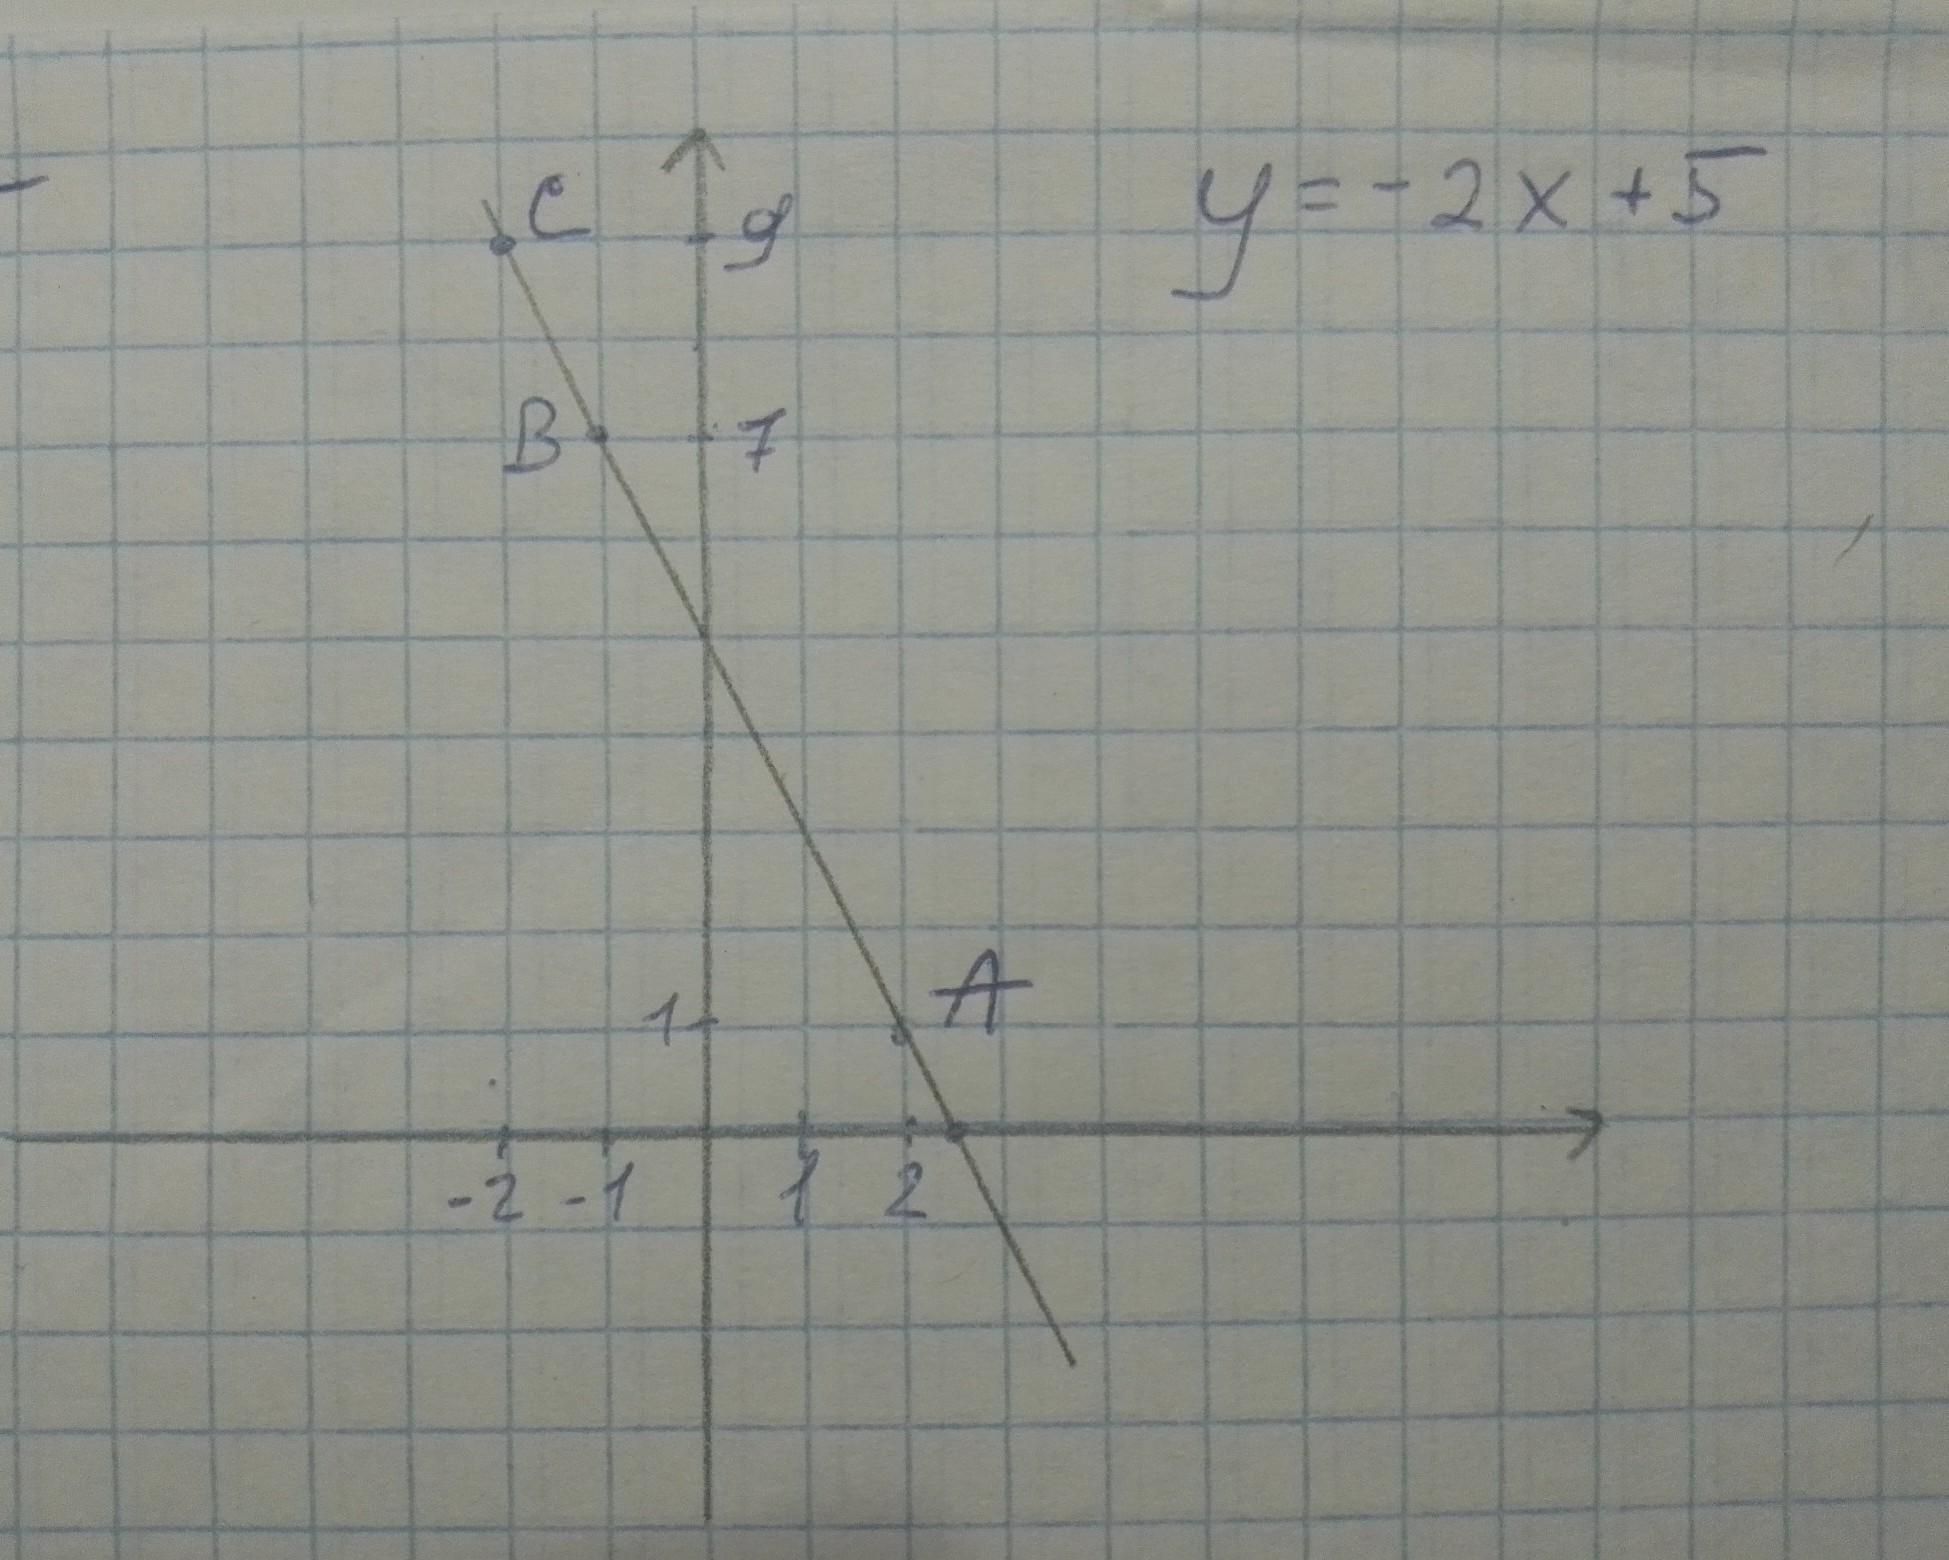 C 9 y=-2x+5
B 7
A
1
-2 -1 1 2